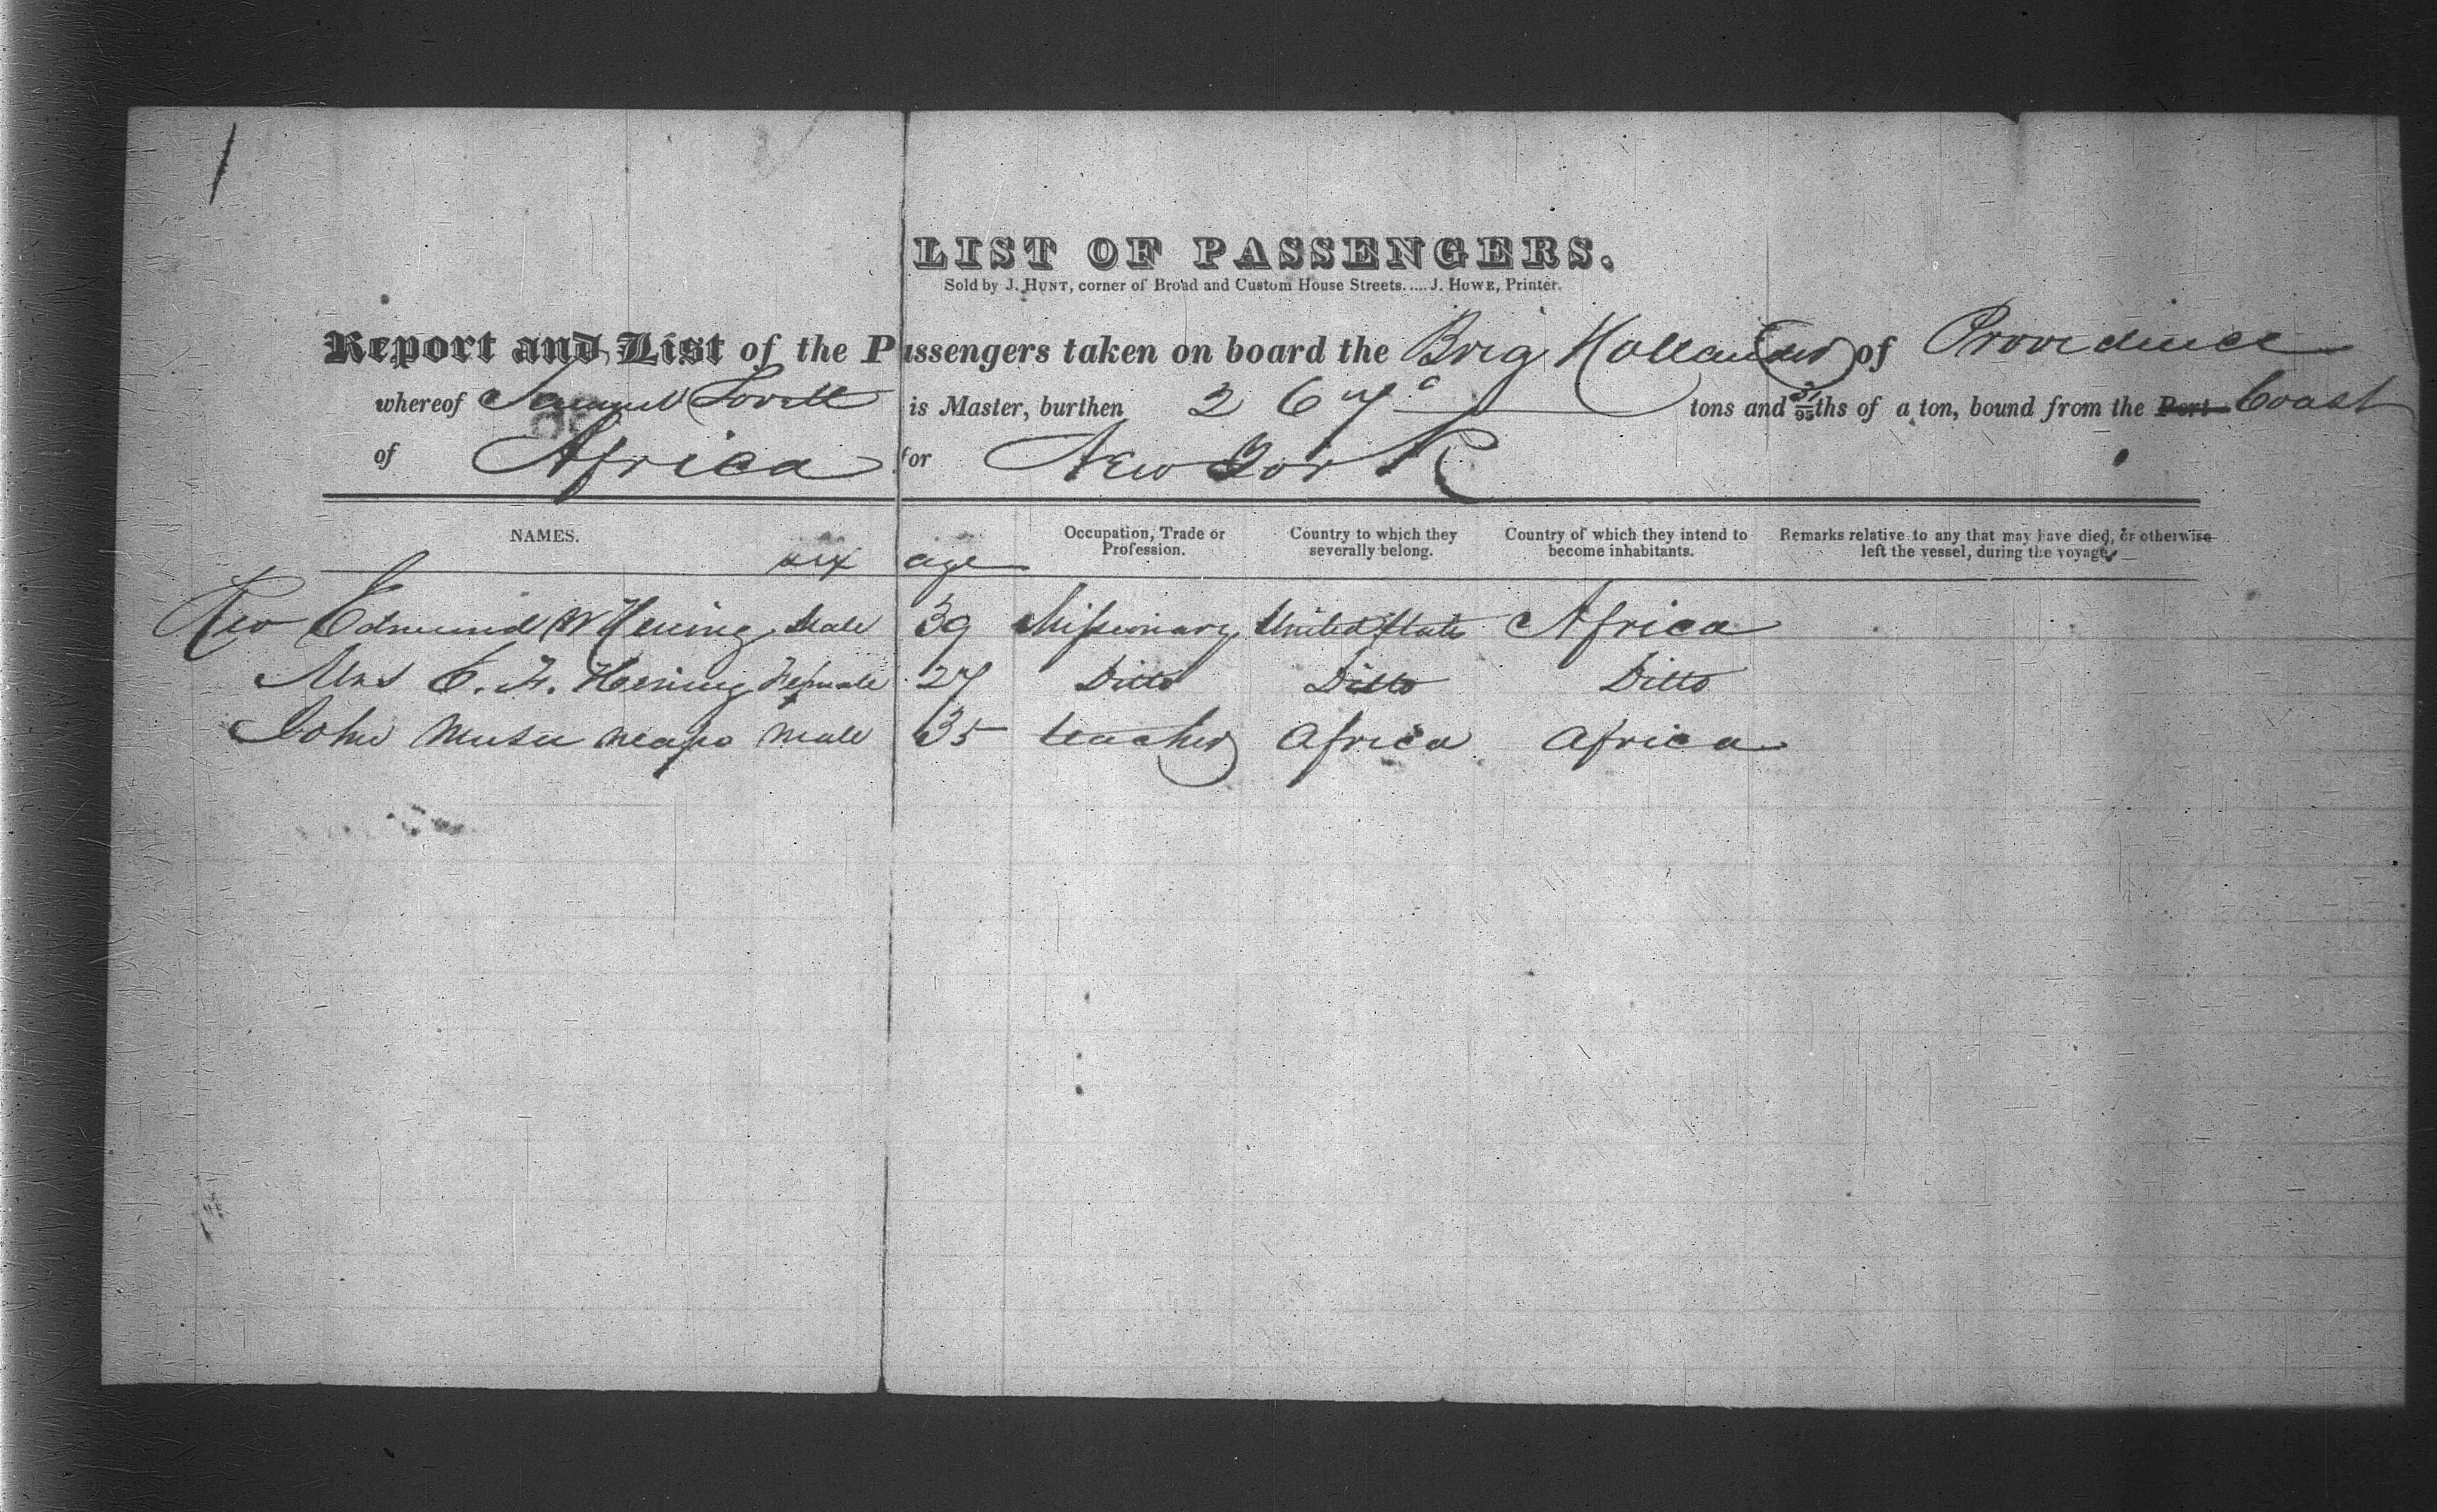 LIST OF PASSENGERS.
Sold by J. HUNT, corner of Broad and Custom House Streets.....J. HOWE, Printer.
Report and List of the Passengers taken on board the Brig Hollander of Providence
whereof Samuel Lovett is Master, burthen 267 tons and 31/95ths of a ton, bound from the Port Coast
of Africa for New York
NAMES. sex age Occupation, Trade or Profession. Country to which they severally belong. Country of which they intend to become inhabitants. Remarks relative to any that may have died, or otherwise left the vessel, during the voyage.
Rev Edmund W Hening Male 39 Missionary United States Africa
Mrs E. F. Hening Female 27 Ditto Ditto Ditto
John Musu male 35 teacher Africa Africa